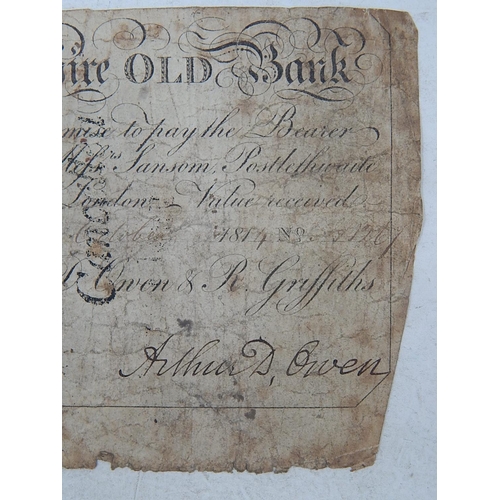 ire OLD Bank
mise to pay the Bearer
Messrs Sansom, Postlethwaite
London. Value received
October 1814 No
Owen & R. Griffiths
Arthur D. Owen
Cancelled